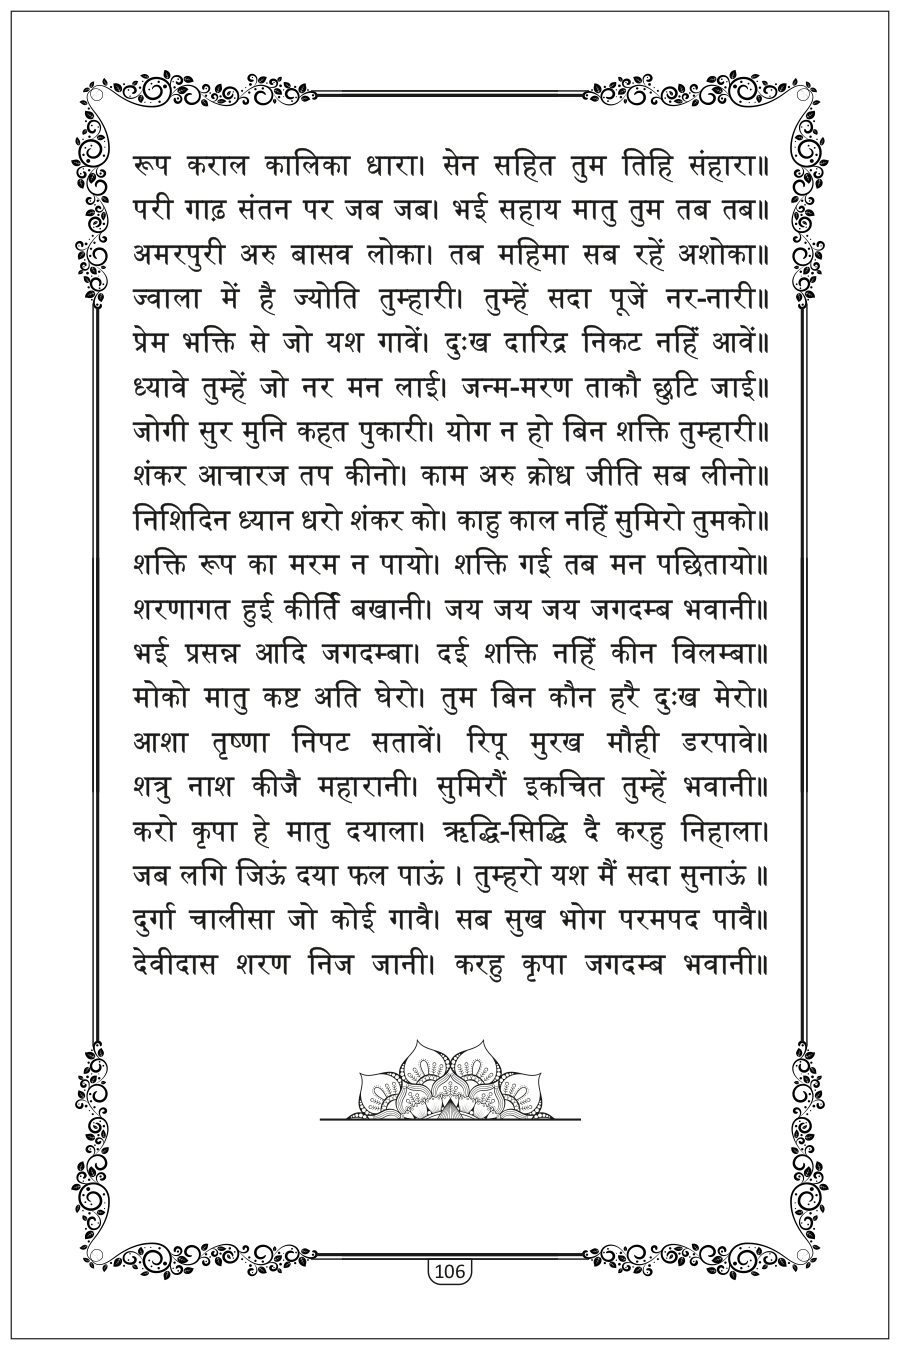 रूप कराल कालिका धारा। सेन सहित तुम तिहि संहारा॥
परी गाढ़ संतन पर जब जब। भई सहाय मातु तुम तब तब॥
अमरपुरी अरु बासव लोका। तब महिमा सब रहें अशोका॥
ज्वाला में है ज्योति तुम्हारी। तुम्हें सदा पूजें नर-नारी॥
प्रेम भक्ति से जो यश गावें। दुःख दारिद्र निकट नहिं आवें॥
ध्यावे तुम्हें जो नर मन लाई। जन्म-मरण ताकौ छुटि जाई॥
जोगी सुर मुनि कहत पुकारी। योग न हो बिन शक्ति तुम्हारी॥
शंकर आचारज तप कीनो। काम अरु क्रोध जीति सब लीनो॥
निशिदिन ध्यान धरो शंकर को। काहु काल नहिं सुमिरो तुमको॥
शक्ति रूप का मरम न पायो। शक्ति गई तब मन पछितायो॥
शरणागत हुई कीर्ति बखानी। जय जय जय जगदम्ब भवानी॥
भई प्रसन्न आदि जगदम्बा। दई शक्ति नहिं कीन विलम्बा॥
मोको मातु कष्ट अति घेरो। तुम बिन कौन हरै दुःख मेरो॥
आशा तृष्णा निपट सतावें। रिपू मुरख मौही डरपावे॥
शत्रु नाश कीजै महारानी। सुमिरौं इकचित तुम्हें भवानी॥
करो कृपा हे मातु दयाला। ऋद्धि-सिद्धि दै करहु निहाला।
जब लगि जिऊं दया फल पाऊं । तुम्हरो यश मैं सदा सुनाऊं ॥
दुर्गा चालीसा जो कोई गावै। सब सुख भोग परमपद पावै॥
देवीदास शरण निज जानी। करहु कृपा जगदम्ब भवानी॥
106